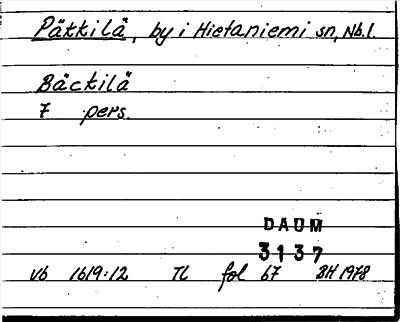 Pättilä, by i Hietaniemi sn, Nb.l.
Bäcktilä
7 pers.
DAUM
3137
Vb 1619:12 TL fol 67 BH 1978